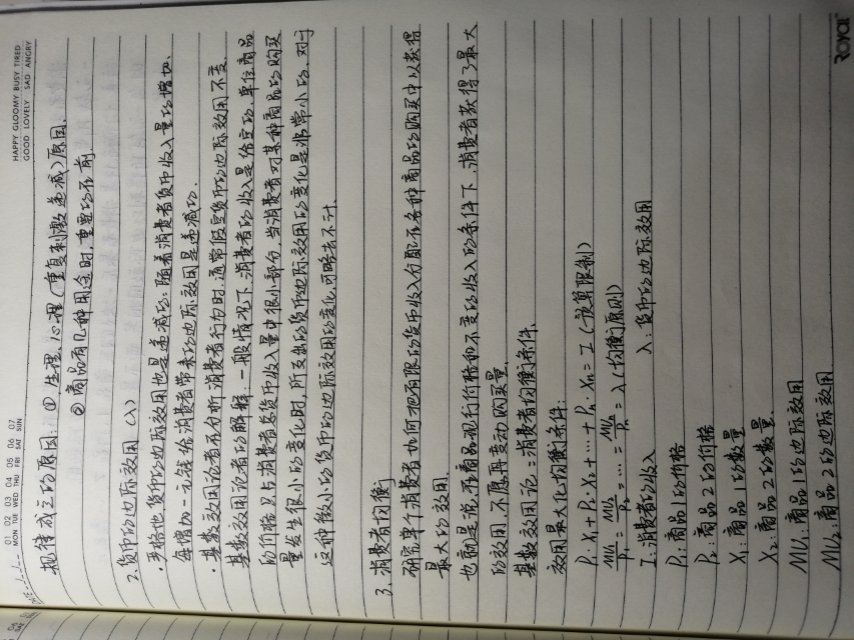 01 02 03 04 05 06 07
MON TUE WED THU FRI SAT SUN
HAPPY GLOOMY BUSY TIRED
GOOD LOVELY SAD ANGRY
规律成立的原因：① 生理、心理（重复刺激递减）原因.
② 商品有几种用途时，重要的在前.
2. 货币的边际效用（λ）
· 严格地，货币的边际效用也是递减的：随着消费者货币收入量的增加、
每增加一元钱给消费者带来的边际效用是递减的.
· 基数效用论者在分析消费者行为时，通常假定货币的边际效用不变
基数效用论者的解释：一般情况下，消费者的收入是给定的，单位商品
的价格只占消费者总货币收入量中很小部分，当消费者对某种商品的购买
量发生很小的变化时，所支出的货币边际效用的变化是非常小的，对于
这种微小的货币的边际效用的变化，可略去不计.
3. 消费者均衡
研究单个消费者如何把有限的货币收入分配在各种商品的购买中以获得
最大的效用.
也就是说，在商品现行价格和不变的收入的条件下，消费者获得了最大
的效用，不愿再变动购买量.
基数效用论：消费者均衡条件.
效用最大化均衡条件：
P₁·X₁+P₂·X₂+…+Pₙ·Xₙ=I（预算限制）
MU₁/P₁=MU₂/P₂=…=MUₙ/Pₙ=λ（均衡原则）
I：消费者的收入 λ：货币的边际效用
P₁：商品1的价格
P₂：商品2的价格
X₁：商品1的数量
X₂：商品2的数量.
MU₁：商品1的边际效用
MU₂：商品2的边际效用
Royal